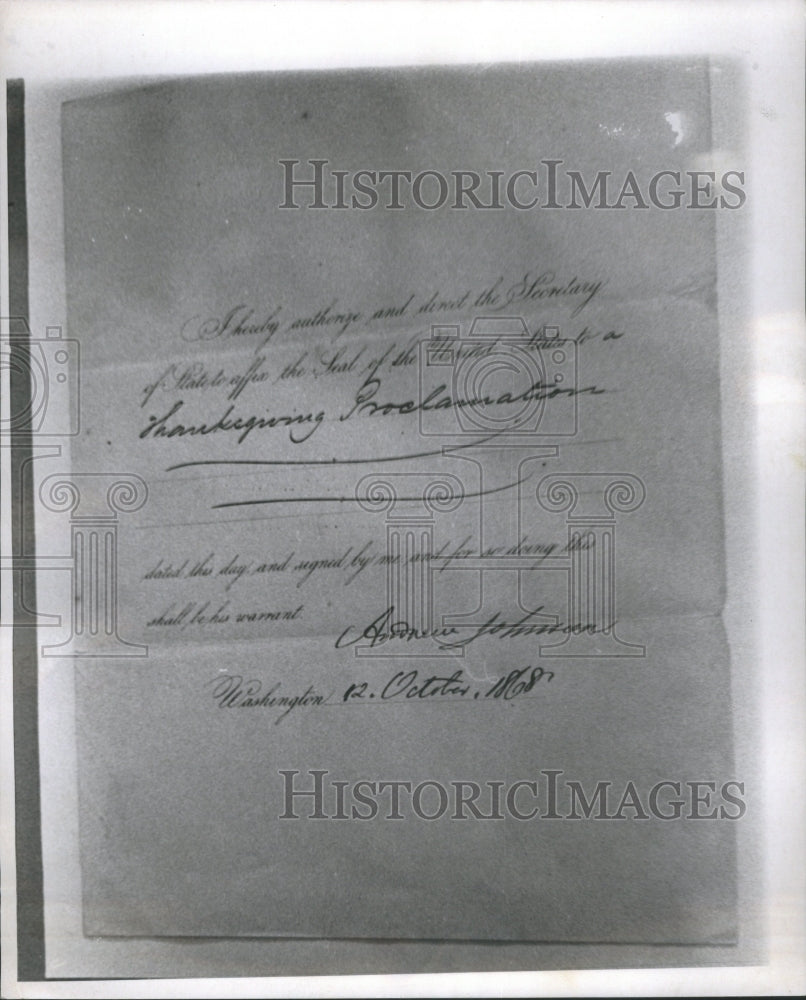 HISTORIC IMAGES
I hereby authorize and direct the Secretary
of State to affix the Seal of the United States to a
Thanksgiving Proclamation
dated this day, and signed by me, and for so doing this
shall be his warrant.
Andrew Johnson
Washington 12. October, 1868.
HISTORIC IMAGES